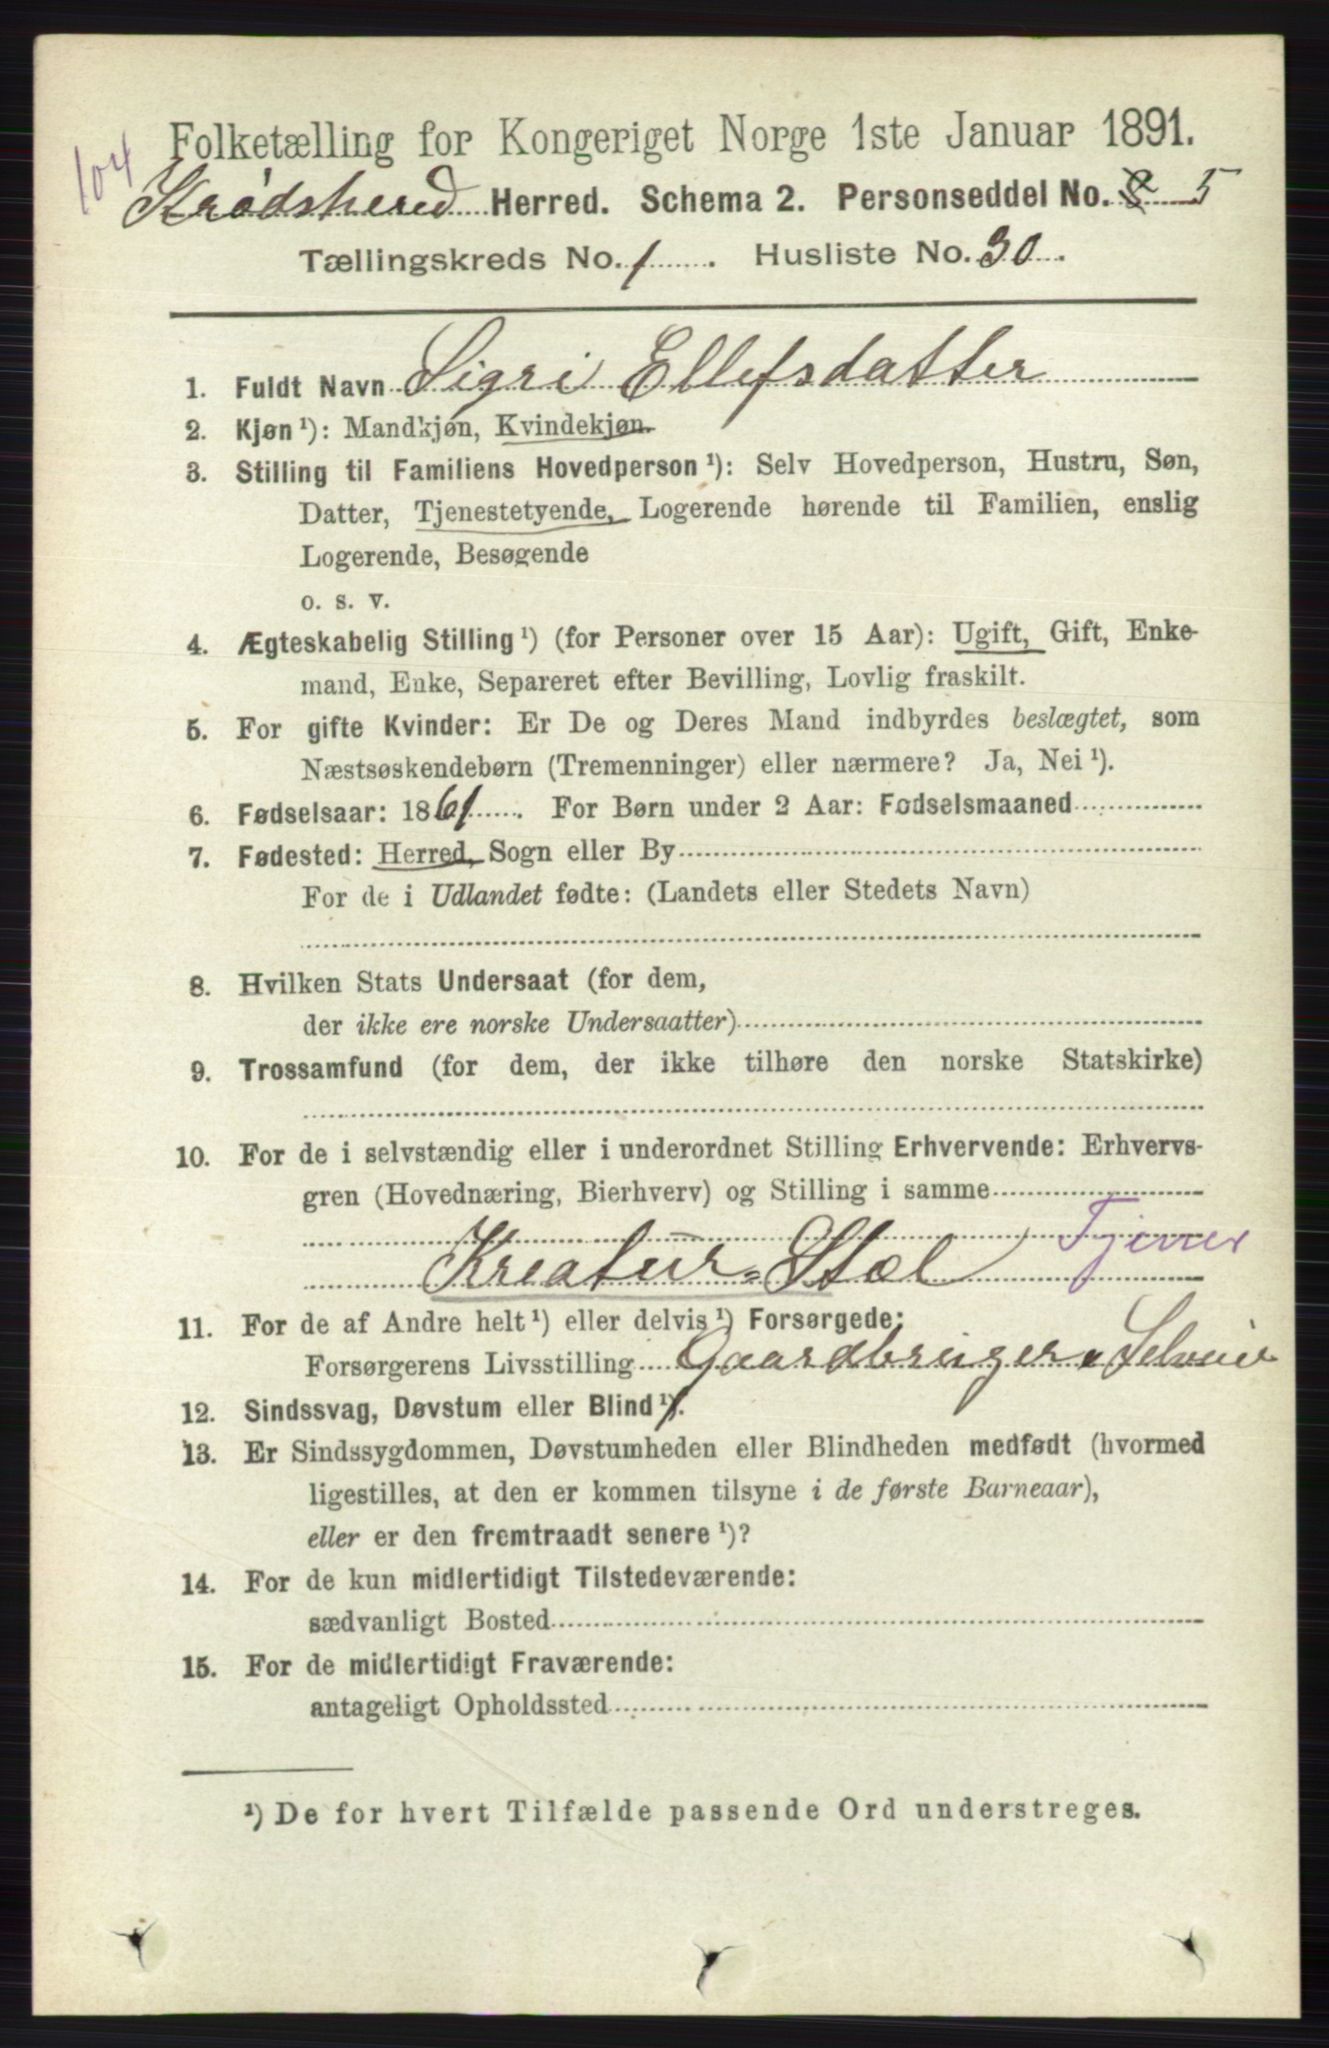 104
Folketælling for Kongeriget Norge 1ste Januar 1891.
Krødshered Herred. Schema 2. Personseddel No. 5
Tællingskreds No. 1. Husliste No. 30.
1. Fuldt Navn Sigri Ellefsdatter
2. Kjøn ¹): Mandkjøn, Kvindekjøn.
3. Stilling til Familiens Hovedperson ¹): Selv Hovedperson, Hustru, Søn,
Datter, Tjenestetyende, Logerende hørende til Familien, enslig
Logerende, Besøgende
o. s. v.
4. Ægteskabelig Stilling ¹) (for Personer over 15 Aar): Ugift, Gift, Enke-
mand, Enke, Separeret efter Bevilling, Lovlig fraskilt.
5. For gifte Kvinder: Er De og Deres Mand indbyrdes beslægtet, som
Næstsøskendebørn (Tremenninger) eller nærmere? Ja, Nei ¹).
6. Fødselsaar: 1861. For Børn under 2 Aar: Fødselsmaaned
7. Fødested: Herred, Sogn eller By
For de i Udlandet fødte: (Landets eller Stedets Navn)
8. Hvilken Stats Undersaat (for dem,
der ikke ere norske Undersaatter)
9. Trossamfund (for dem, der ikke tilhøre den norske Statskirke)
10. For de i selvstændig eller i underordnet Stilling Erhvervende: Erhvervs-
gren (Hovednæring, Bierhverv) og Stilling i samme
Kreatur=Stæl Tjener
11. For de af Andre helt ¹) eller delvis ¹) Forsørgede:
Forsørgerens Livsstilling Gaardbruger, Selveier
12. Sindssvag, Døvstum eller Blind ¹).
13. Er Sindssygdommen, Døvstumheden eller Blindheden medfødt (hvormed
ligestilles, at den er kommen tilsyne i de første Barneaar),
eller er den fremtraadt senere ¹)?
14. For de kun midlertidigt Tilstedeværende:
sædvanligt Bosted
15. For de midlertidigt Fraværende:
antageligt Opholdssted
¹) De for hvert Tilfælde passende Ord understreges.